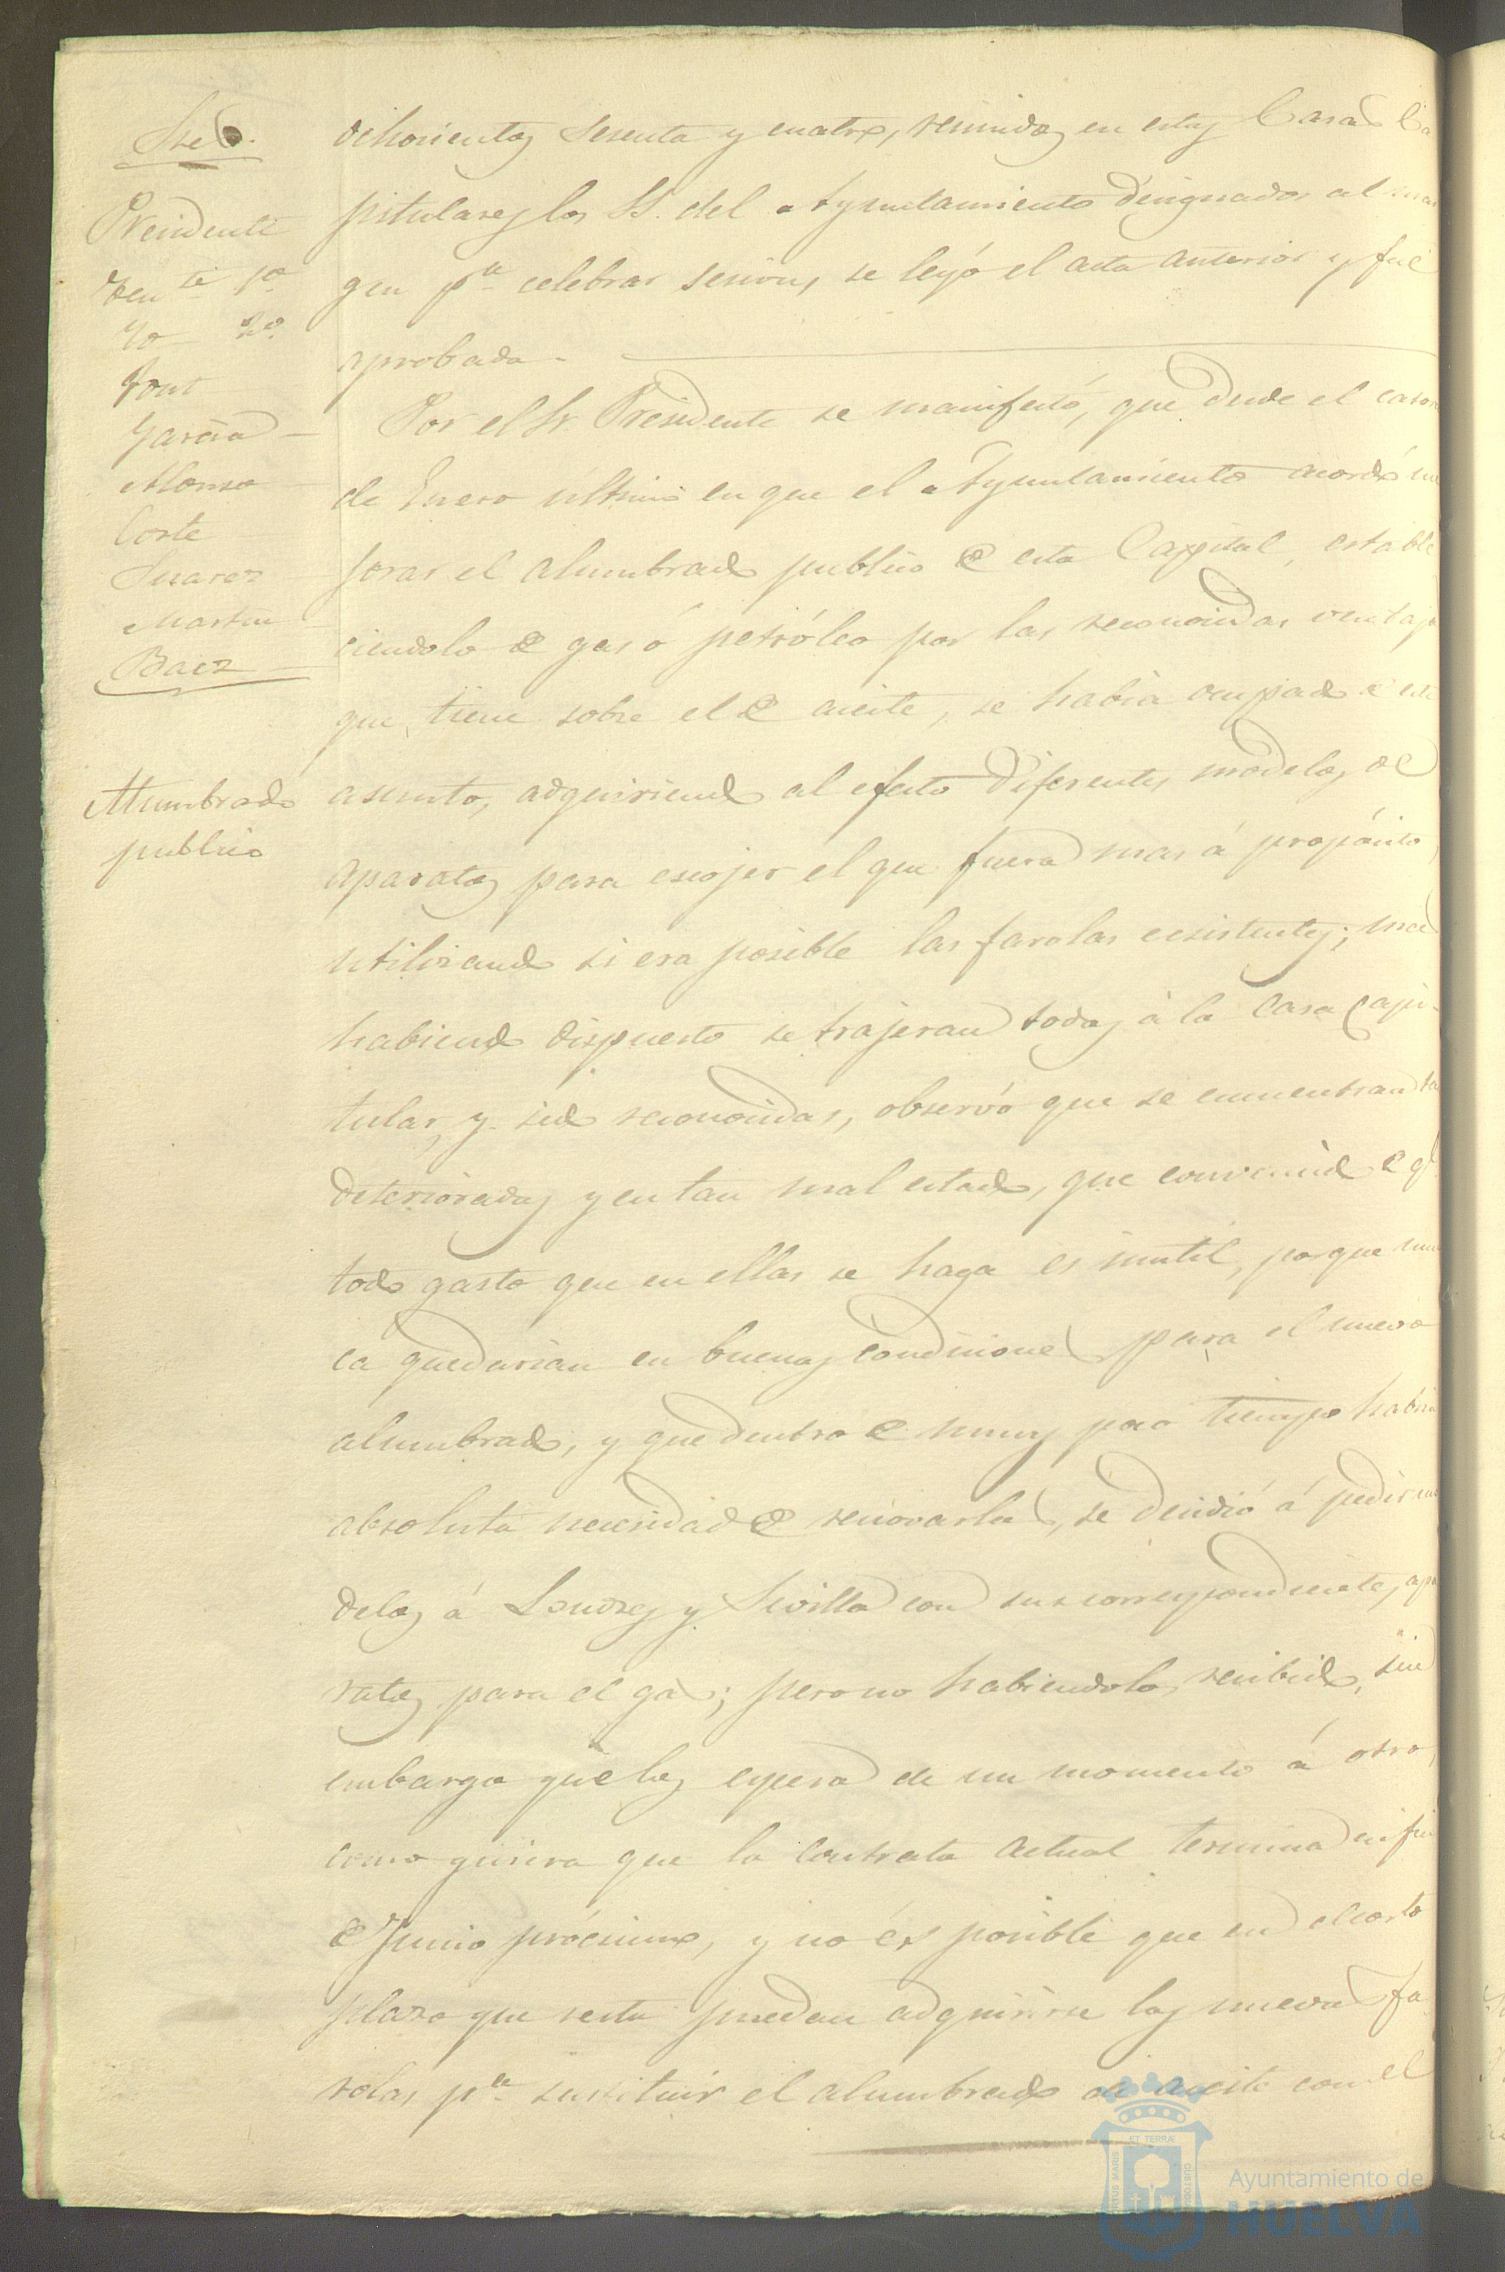 Sres.
Presidente
Ten.te 1º
Yd 2º
Font
Garcia
Alonso
Corte
Suarez
Martin
Baez
ochocientos sesenta y cuatro, reunidos en estas Casas Ca
pitulares los SS. del Ayuntamiento designados al mar
gen p.a celebrar sesion, se leyó el acta anterior y fué
aprobada.
Por el Sr Presidente se manifestó, que desde el catorce
de Enero último en que el Ayuntamiento acordó me
jorar el alumbrado publico de esta Capital, estable
ciendolo de gas ó petróleo por las reconocidas ventajas
que tiene sobre el de aceite, se habia ocupado de este
Alumbrado
publico
asunto, adquiriendo al efecto diferentes modelos de
aparatos para escojer el que fuera mas á propósito,
utilizando si era posible las farolas ecsistentes; mas
habiendo dispuesto se trajeran todas á la Casa Capi-
tular, y sido reconocidas, observó que se encuentran tan
deterioradas y en tan mal estado, que convencido de q.e
todo gasto que en ellas se haga es inutil, porque nun
ca quedarian en buenas condiciones para el nuevo
alumbrado, y que dentro de muy poco tiempo habria
absoluta necesidad de renovarlas, se decidió á pedir mo
delos á Londres y Sevilla con sus correspondientes apa
ratos para el gas; pero no habiendolos recibido, sin
embargo que los espera de un momento á otro,
como quiera que la contrata actual termina en fin
de Junio prócsimo, y no és posible que en el corto
plazo que resta puedan adquirirse las nuevas fa
rolas p.a sustituir el alumbrado de aceite con el
Ayuntamiento de
HUELVA